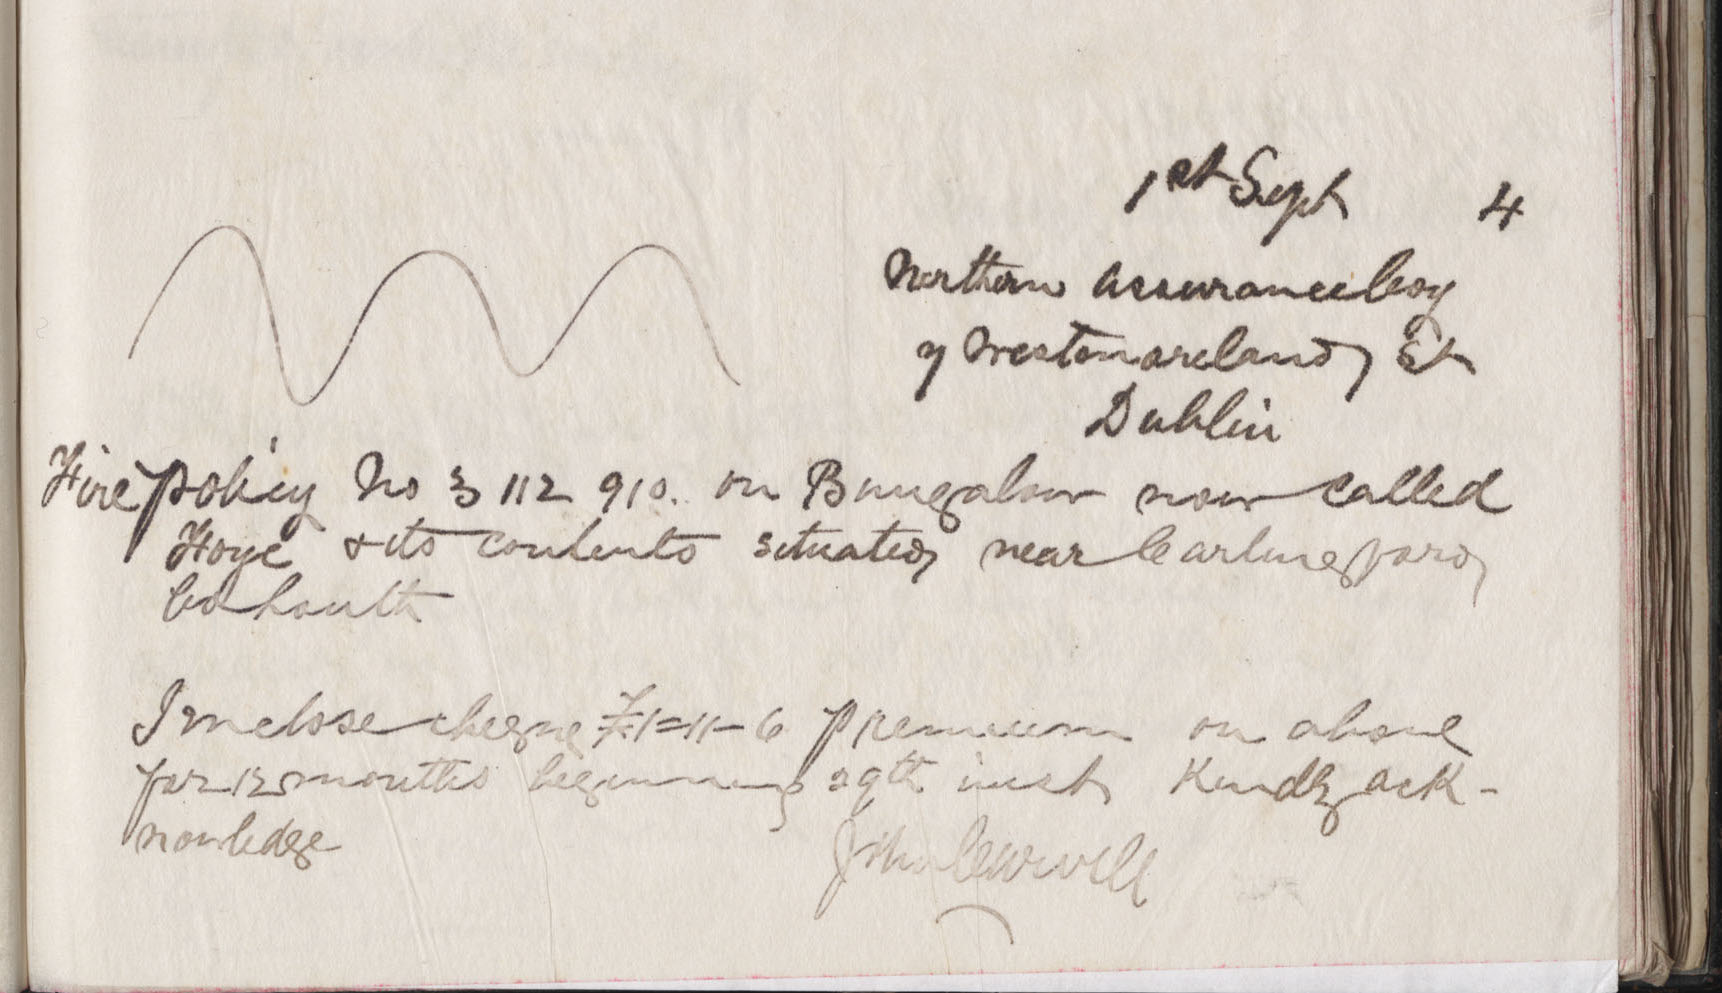 1st Sept 4
Northern Assurance Coy
7 Westmoreland St
Dublin
Fire policy No 3 112 910. on Bungalow now called
Hoye & its contents situated near Carlingford
Co Louth
I inclose cheque £1=11-6 premium on above
for 12 months beginning 29th inst Kindly ack-
nowledge
John